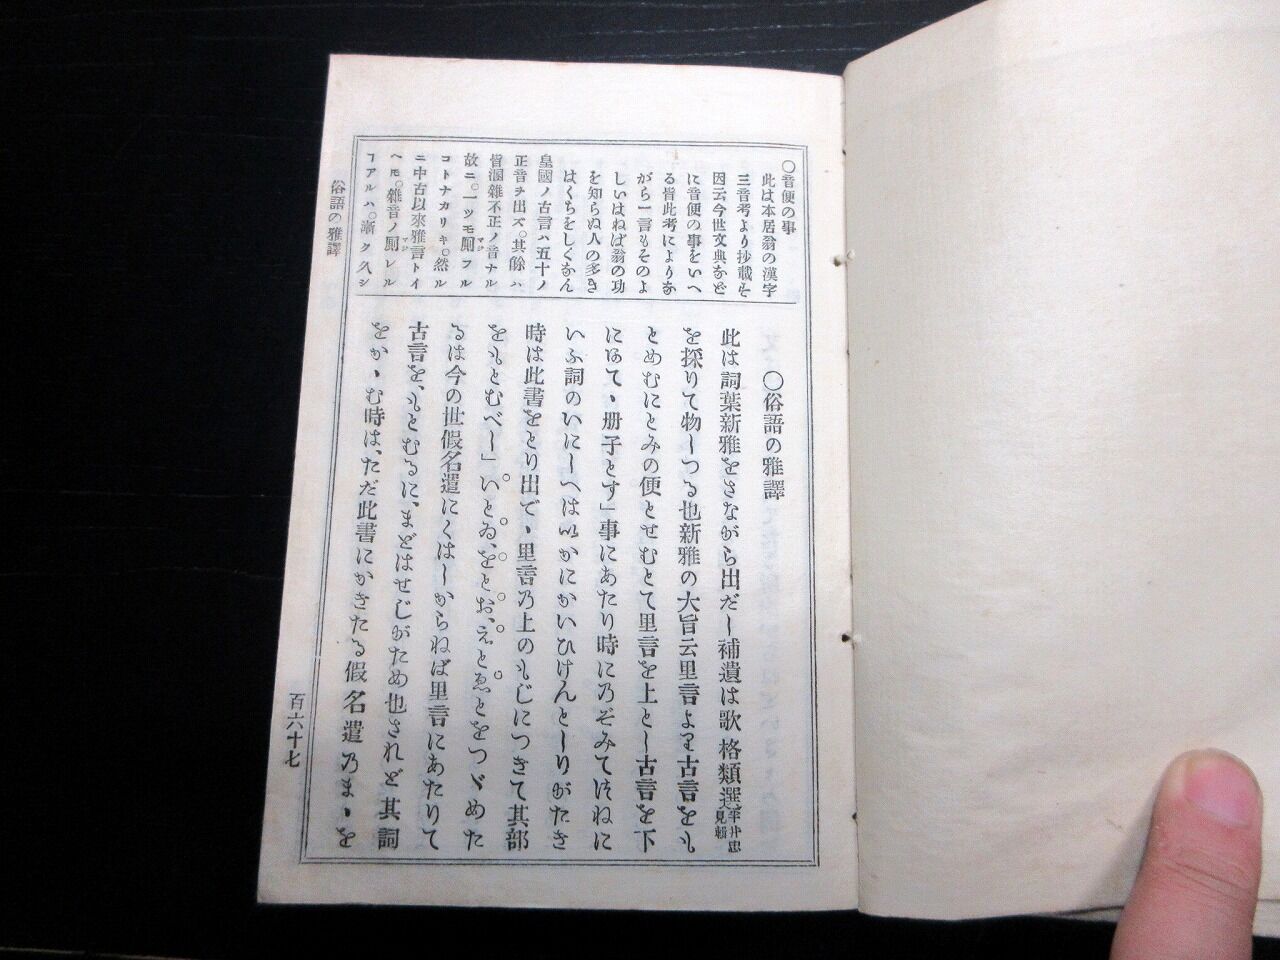 〇音便の事
此は本居翁の漢字
三音考より抄載す
因云今世文典などに
に音便の事をいへ
る皆此考によりな
がら一言もそのよ
しいはねば翁の功
を知らぬ人の多き
はくちをしくなん
皇國ノ古言ハ五十ノ
正音ヲ出ズ。其餘ハ
皆溷雜不正ノ音ナル
故ニ。一ツモ厠マジフル
コトナカリキ。然ル
ニ中古以來雅言トイ
ヘ𪜈。雜音ノ厠マジレル
ヿアルハ。漸ク久シ
〇俗語の雅譯
此は詞葉新雅をさながら出だし補遺は歌格類選半井忠見頼
を採りて物しつる也新雅の大旨云里言より古言をも
とめむにとみの便とせむとて里言を上とし古言を下
にあて、册子とす」事にあたり時にのぞみてつねに
いふ詞のいにしへはいかにかいひけんとしりがたき
時は此書をとり出で、里言の上のもじにつきて其部
をもとむべし」いとゐ、をとお、えとゑとをつゞめた
るは今の世假名遣にくはしからねば里言にあたりて
古言を、もとむるに、まどはせじがため也されど其詞
をかゝむ時は、ただ此書にかきたる假名遣のまゝを
俗語の雅譯
百六十七